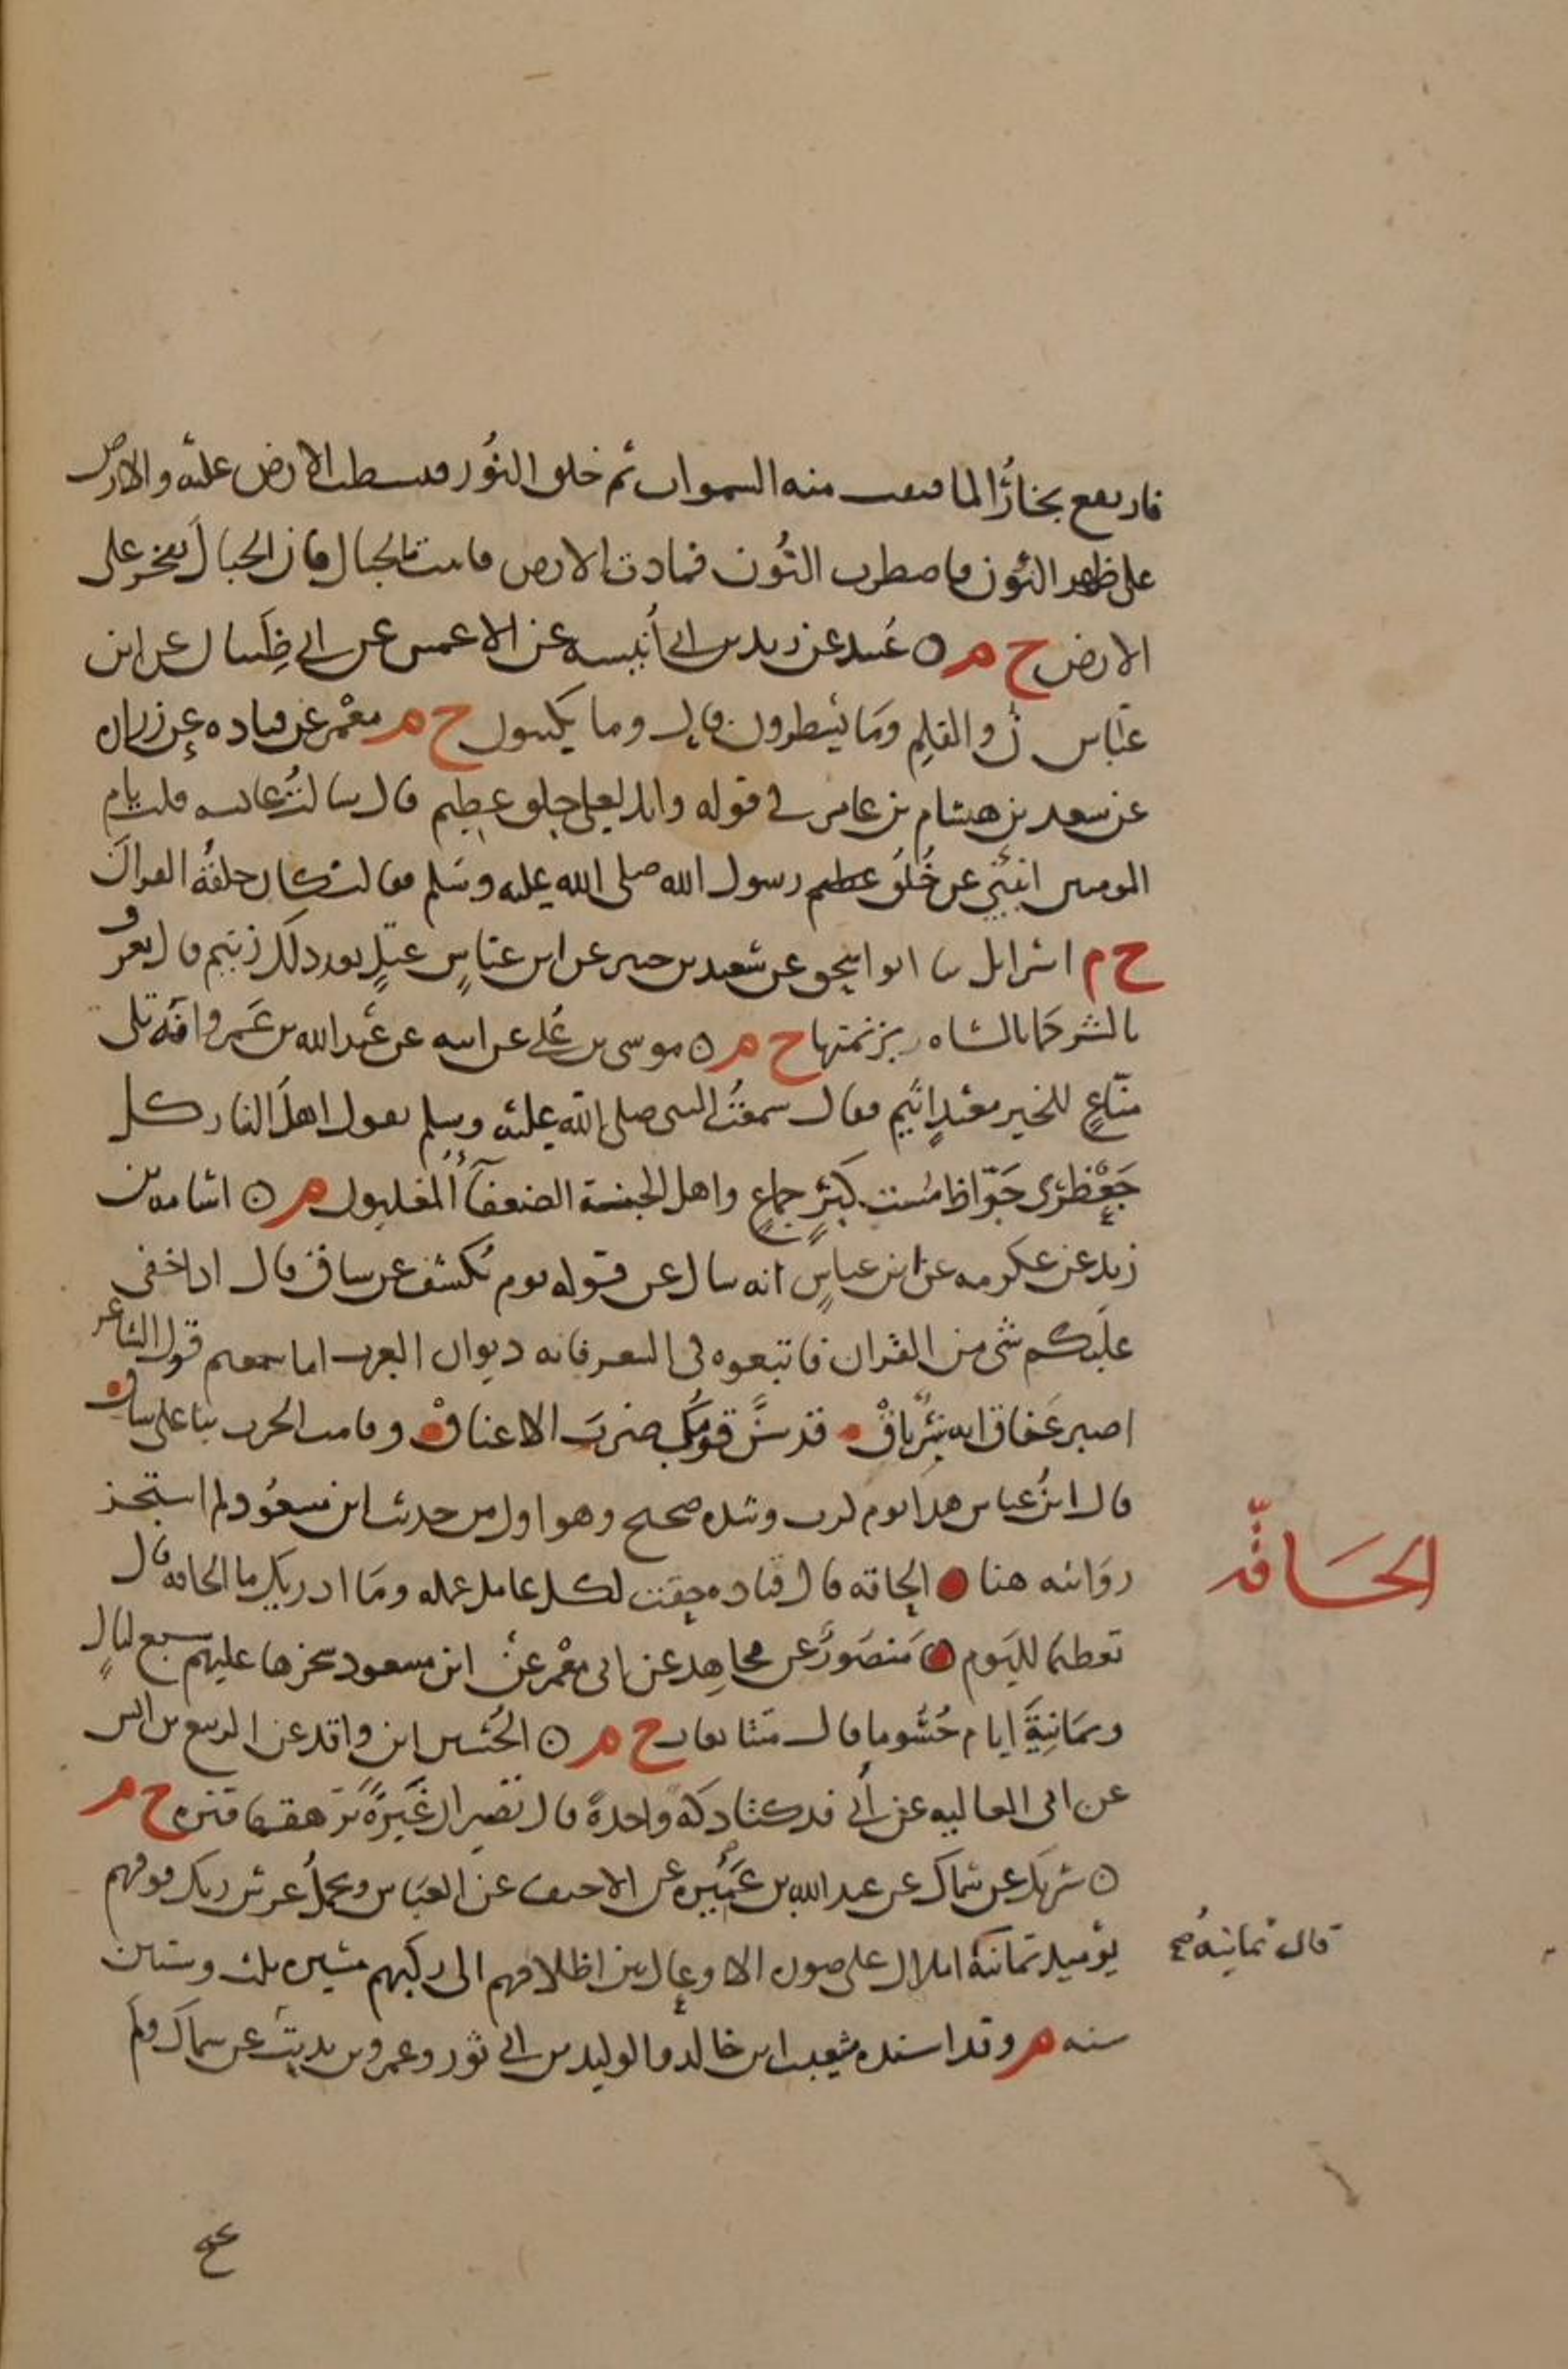 فارتفع بخارُ الما ففتقت منه السموات ثم خلق النُور فبسطت الارض عليه والارض
على ظهر النُون فاضطرب النُون فمادت الارض فاثبتت بالجبال فان الجبال تفخر على
الارض ح م ○ عُبيد عن زيد بن ابي أُنيسه عن الاعمش عن ابي ظَبيان عن ابن
عبّاس نۤ والقلم ومَا يَسطرون قال وما يكتبون ح م معْمر عن قتاده عن زراره
عن سعد بن هشام بن عامر في قوله وانك لعلى خلق عظيم قال سالتُ عايشه فقلت يا ام
المومنين انبئيني عن خُلُق عظيم رسول الله صلى الله عليه وسَلم فقالت كان خلقهُ القرآن
ح م اسرائل ثنا ابو اسحق عن سَعيد بن جبير عن ابن عبّاسٍ عتلٍ بعد ذلك زنيم قال يعرف
بالشر كما الشاه بزنمتها ح م ○ موسى بن عُلي عن ابيه عن عَبد الله بن عَمرو انّه تلى
منّاعٍ للخير معتدٍ اثيم فقال سمعتُ النبى صلى الله عليه وسلم يقول اهل النار كل
جَعْظرى جَوّاظ مستكبرٍ جماعٍ واهل الجنة الضعفآءُ المغلبون م ○ اسامه بن
زيد عن عكرمه عن ابن عباسٍ انه سال عن قوله يوم يُكشف عن ساق قال اذا خفى
عليكم شى من القران فاتبعوه في الشعر فانه ديوان العرب اما سمعتم قول الشاعر
اصبر عَفاق انه شِرّباقْ قد سنَّ قومُكِ ضربَ الاعناقْ وقامت الحرب بنا على ساق
قال ابنُ عباس هذا يوم كرب وشده صحيح وهو اولى من حديث ابن مسعُود لم استجز
روَايته هنا الحاقه قال قتاده حقت لكل عامل عمله ومَا ادريك ما الحاقه قال
تعظيما لليَوم مَنصَورُ عن مجاهد عن ابى معْمر عنْ ابن مسعود سخرها عليهم سبع ليالٍ
وثمَانِيَةَ ايام حُسُوما قال متتابعات ح م ○ الحُسين ابن واقد عن الربيع بن انس
عن ابى العاليه عن أُبي فدكتا دكّة وَاحدةً قال تصيران غَبَرَةً ترهقها قترة ح م
○ شريك عن سماك عن عبد الله بن عَمِيرَه عن الاحنف عن العبَاس ويحمل عرش ربك فوقهم
يوميذ ثمانيَة املاك على صوره الاوعال بين اظلافهم الى ركبهم مسيره ثلث وستين
سنه م وقد اسنده شعيب ابن خالد والوليد بن ابي ثور وعمرو بن ثابت عن سماك ولَم
الحَاقّه
قال ثمانيهُ صح